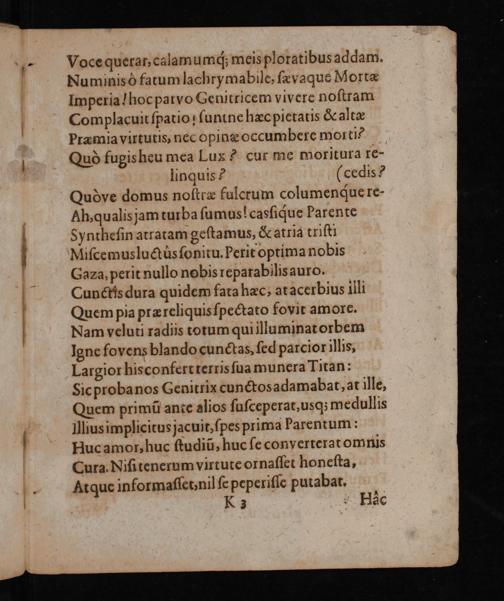 Voce querar, calamumq́; meis ploratibus addam.
Numinis ò fatum lachrymabile, sævaque Mortæ
Imperia! hoc parvo Genitricem vivere nostram
Complacuit spatio? suntne hæc pietatis & altæ
Præmia virtutis, nec opinæ occumbere morti?
Quò fugis heu mea Lux? cur me moritura re-
linquis? (cedis?
Quòve domus nostræ fulcrum columenq́ue re-
Ah, qualis jam turba sumus! cassiq́ue Parente
Synthesin atratam gestamus, & atria tristi
Miscemus luctûs sonitu. Perit optima nobis
Gaza, perit nullo nobis reparabilis auro.
Cunctis dura quidem fata hæc, at acerbius illi
Quem pia præ reliquis spectato fovit amore.
Nam veluti radiis totum qui illuminat orbem
Igne fovens blando cunctas, sed parcior illis,
Largior his confert terris sua munera Titan:
Sic proba nos Genitrix cunctos adamabat, at ille,
Quem primū ante alios susceperat, usq; medullis
Illius implicitus jacuit, spes prima Parentum:
Huc amor, huc studiū, huc se converterat omnis
Cura. Nisi tenerum virtute ornasset honesta,
Atque informasset, nil se peperisse putabat.
K 3 Hâc